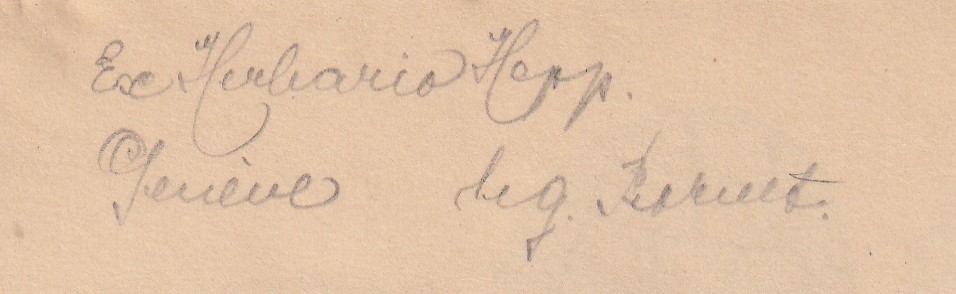 Ex Herbario Hepp.
Genève leg. Bornet.